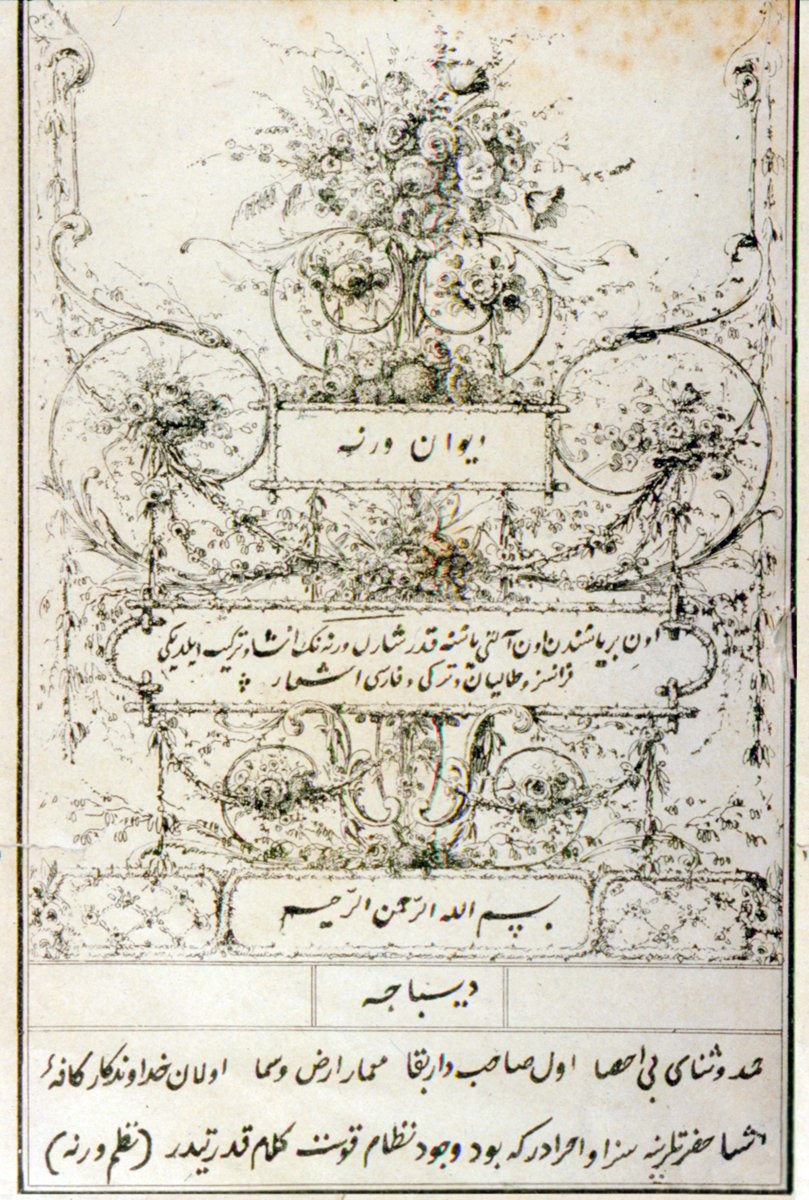 دیوان ورنه
اون بر یاشندن اون آلتی یاشنه قدر شارل ورنه نک انشا و ترکیب ایلدیکی
فرانسز و طالیان و ترکی و فارسی اشعار
بسم الله الرّحمن الرّحیم
دیباجه
حمد و ثنای بی احصا اول صاحب دار بقا معمار ارض و سما اولان خداوندکار کافهٔ
اشیا حضرتلرینه سزا و احرادر که بود وجود نظام قوت کلام قدرتیدر (نظم ورنه)